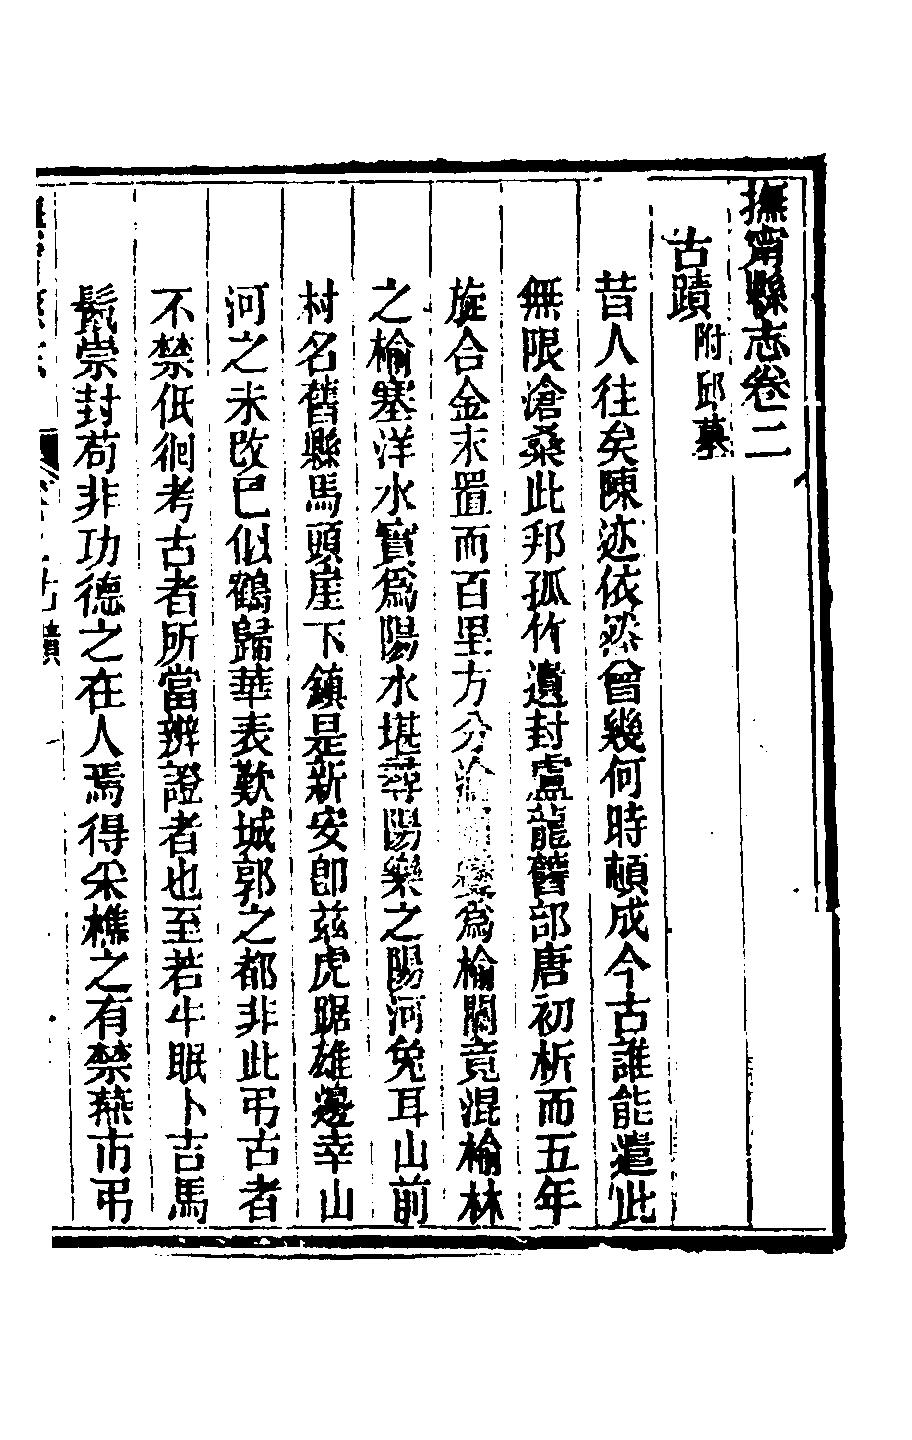 撫甯縣志卷二
古蹟附邱墓
昔人往矣陳迹依然曾幾何時頓成今古誰能遣此
無限滄桑此邦孤竹遺封盧龍舊部唐初析而五年
旋合金末置而百里方分渝關變為榆關竟混榆林
之榆塞洋水實為陽水堪尋陽樂之陽河兔耳山前
村名舊縣馬頭崖下鎮是新安卽茲虎踞雄邊幸山
河之未改已似鶴歸華表歎城郭之都非此弔古者
不禁低徊考古者所當辨證者也至若牛眠卜吉馬
鬛崇封苟非功德之在人焉得采樵之有禁燕市弔